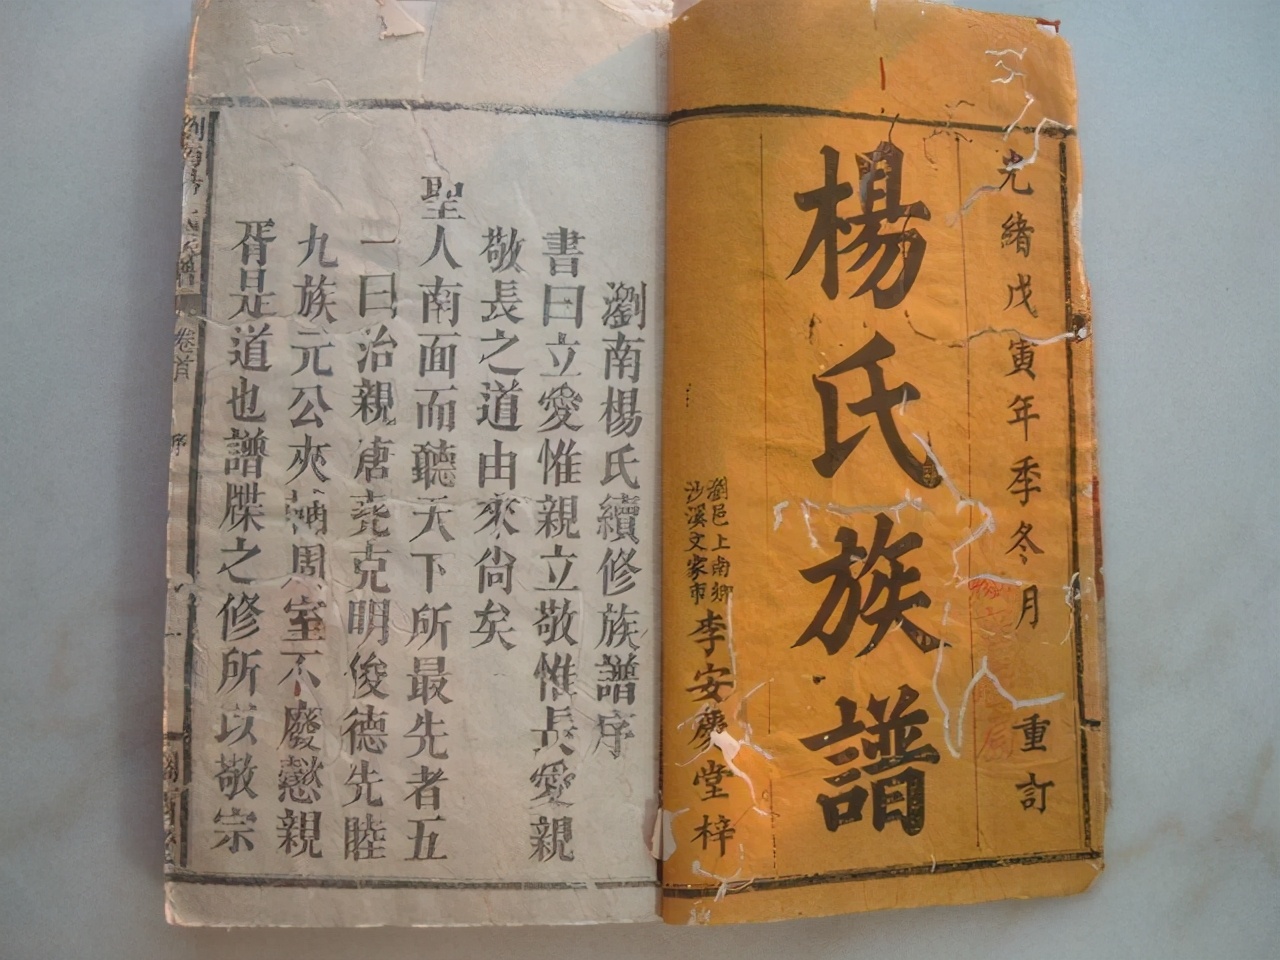 光緒戊寅年季冬月 重訂
楊氏族譜
瀏邑上南鄉
沙溪文家市
李安慶堂梓
瀏南楊氏續修族譜序
書曰立愛惟親立敬惟長愛親
敬長之道由來尚矣
聖人南面而聽天下所最先者五
一曰治親唐堯克明俊德先睦
九族元公夾輔周室不廢懿親
胥是道也譜牒之修所以敬宗
卷首
序